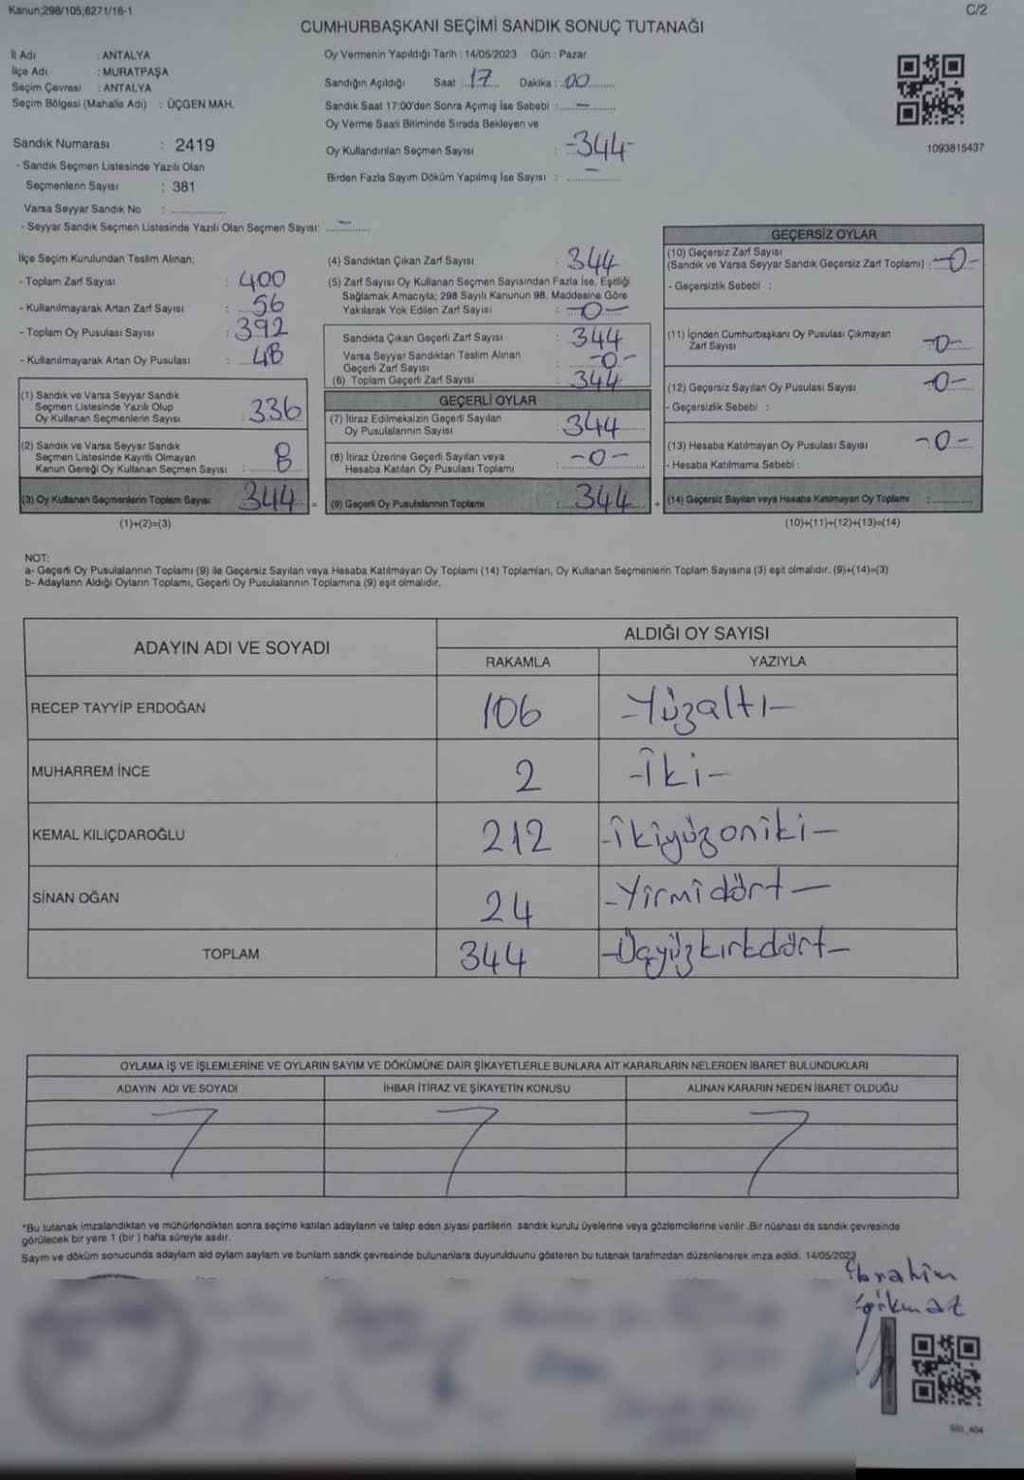 Kanun;298/105;6271/18-1
C/2
CUMHURBAŞKANI SEÇİMİ SANDIK SONUÇ TUTANAĞI
İl Adı : ANTALYA
İlçe Adı : MURATPAŞA
Seçim Çevresi : ANTALYA
Seçim Bölgesi (Mahalle Adı) : ÜÇGEN MAH.
Oy Vermenin Yapıldığı Tarih : 14/05/2023 Gün : Pazar
Sandığın Açıldığı Saat : 17 Dakika : 00
Sandık Saat 17:00'den Sonra Açımış İse Sebebi : —
Oy Verme Saati Bitiminde Sırada Bekleyen ve
Oy Kullandırılan Seçmen Sayısı : -344-
Birden Fazla Sayım Döküm Yapılmış İse Sayısı : —
1093815437
Sandık Numarası : 2419
- Sandık Seçmen Listesinde Yazılı Olan
Seçmenlerin Sayısı : 381
Varsa Seyyar Sandık No :
- Seyyar Sandık Seçmen Listesinde Yazılı Olan Seçmen Sayısı: —
İlçe Seçim Kurulundan Teslim Alınan:
- Toplam Zarf Sayısı : 400
- Kullanılmayarak Artan Zarf Sayısı : 56
- Toplam Oy Pusulası Sayısı : 392
- Kullanılmayarak Artan Oy Pusulası : 48
(1) Sandık ve Varsa Seyyar Sandık
Seçmen Listesinde Yazılı Olup
Oy Kullanan Seçmenlerin Sayısı : 336
(2) Sandık ve Varsa Seyyar Sandık
Seçmen Listesinde Kayıtlı Olmayan
Kanun Gereği Oy Kullanan Seçmen Sayısı : 8
(3) Oy Kullanan Seçmenlerin Toplam Sayısı : 344 =
(1)+(2)=(3)
(4) Sandıktan Çıkan Zarf Sayısı : 344
(5) Zarf Sayısı Oy Kullanan Seçmen Sayısından Fazla İse, Eşitliği
Sağlamak Amacıyla; 298 Sayılı Kanunun 98. Maddesine Göre
Yakılarak Yok Edilen Zarf Sayısı : -0-
Sandıkta Çıkan Geçerli Zarf Sayısı : 344
Varsa Seyyar Sandıktan Teslim Alınan
Geçerli Zarf Sayısı : -0-
(6) Toplam Geçerli Zarf Sayısı : 344
GEÇERLİ OYLAR
(7) İtiraz Edilmeksizin Geçerli Sayılan
Oy Pusulalarının Sayısı : 344
(8) İtiraz Üzerine Geçerli Sayılan veya
Hesaba Katılan Oy Pusulası Toplamı : -0-
(9) Geçerli Oy Pusulalarının Toplamı : 344 +
GEÇERSİZ OYLAR
(10) Geçersiz Zarf Sayısı
(Sandık ve Varsa Seyyar Sandık Geçersiz Zarf Toplamı) : -0-
- Geçersizlik Sebebi :
(11) İçinden Cumhurbaşkanı Oy Pusulası Çıkmayan
Zarf Sayısı : -0-
(12) Geçersiz Sayılan Oy Pusulası Sayısı : -0-
- Geçersizlik Sebebi :
(13) Hesaba Katılmayan Oy Pusulası Sayısı : -0-
- Hesaba Katılmama Sebebi :
(14) Geçersiz Sayılan veya Hesaba Katılmayan Oy Toplamı :
(10)+(11)+(12)+(13)=(14)
NOT:
a- Geçerli Oy Pusulalarının Toplamı (9) ile Geçersiz Sayılan veya Hesaba Katılmayan Oy Toplamı (14) Toplamları, Oy Kullanan Seçmenlerin Toplam Sayısına (3) eşit olmalıdır. (9)+(14)=(3)
b- Adayların Aldığı Oyların Toplamı, Geçerli Oy Pusulalarının Toplamına (9) eşit olmalıdır.
ADAYIN ADI VE SOYADI
ALDIĞI OY SAYISI
RAKAMLA YAZIYLA
RECEP TAYYİP ERDOĞAN 106 -Yüzaltı-
MUHARREM İNCE 2 -İki-
KEMAL KILIÇDAROĞLU 212 -İkiyüzoniki-
SİNAN OĞAN 24 -Yirmidört-
TOPLAM 344 -Üçyüzkırkdört-
OYLAMA İŞ VE İŞLEMLERİNE VE OYLARIN SAYIM VE DÖKÜMÜNE DAİR ŞİKAYETLERLE BUNLARA AİT KARARLARIN NELERDEN İBARET BULUNDUKLARI
ADAYIN ADI VE SOYADI İHBAR İTİRAZ VE ŞİKAYETİN KONUSU ALINAN KARARIN NEDEN İBARET OLDUĞU
*Bu tutanak imzalandıktan ve mühürlendikten sonra seçime katılan adayların ve talep eden siyasi partilerin sandık kurulu üyelerine veya gözlemcilerine verilir. Bir nüshası da sandık çevresinde
görülecek bir yere 1 (bir) hafta süreyle asılır.
Sayım ve döküm sonucunda adayların aldı oyların sayların ve bunların sandk çevresinde bulunanlara duyurulduunu gösteren bu tutanak tarafımzdan düzenlenerek imza edildi. 14/05/2023
İbrahim